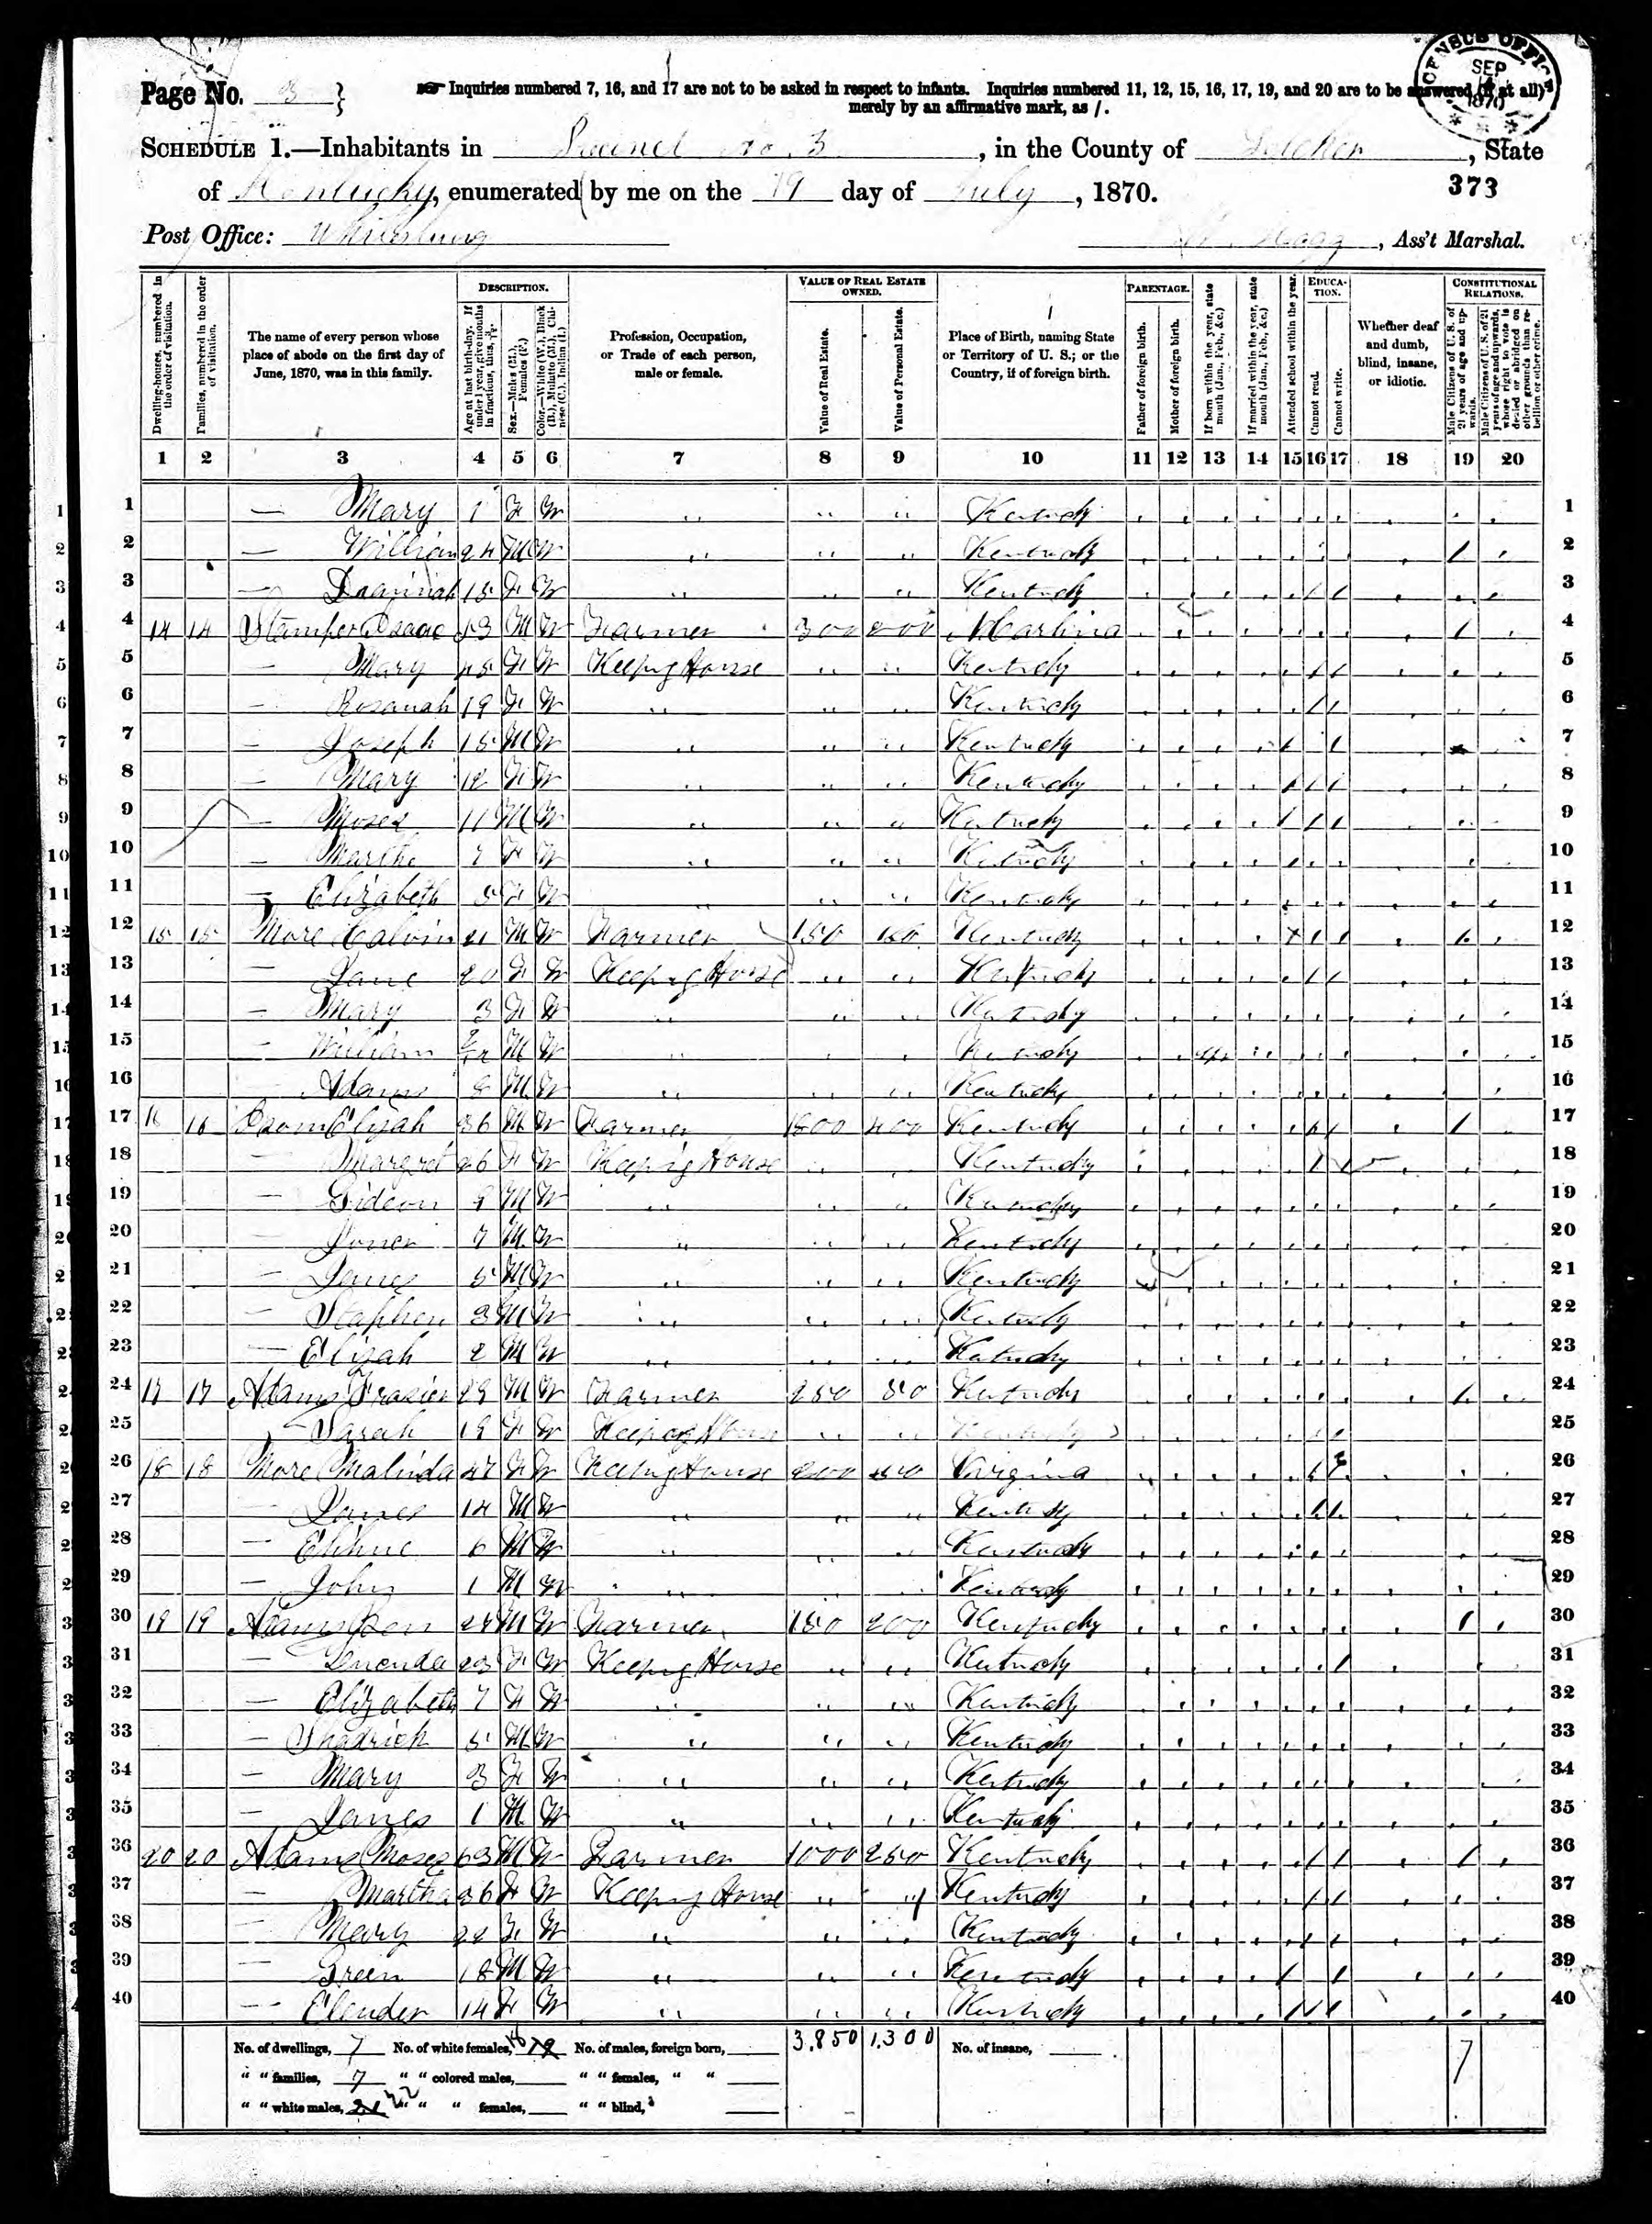 Page No. 3 }
Inquiries numbered 7, 16, and 17 are not to be asked in respect to infants. Inquiries numbered 11, 12, 15, 16, 17, 19, and 20 are to be answered (if at all)
merely by an affirmative mark, as /.
CENSUS OFFICE SEP 1870
SCHEDULE 1.—Inhabitants in No. 3, in the County of Letcher, State
of Kentucky, enumerated by me on the 19 day of July, 1870.
373
Post Office: Whitesburg
Hogg, Ass't Marshal.
Dwelling-houses, numbered in the order of visitation.
Families, numbered in the order of visitation.
The name of every person whose place of abode on the first day of June, 1870, was in this family.
DESCRIPTION.
Age at last birth-day. If under 1 year, give months in fractions, thus, 3/12.
Sex.—Males (M.), Females (F.)
Color.—White (W.), Black (B.), Mulatto (M.), Chinese (C.), Indian (I.)
Profession, Occupation, or Trade of each person, male or female.
VALUE OF REAL ESTATE OWNED.
Value of Real Estate.
Value of Personal Estate.
Place of Birth, naming State or Territory of U. S.; or the Country, if of foreign birth.
PARENTAGE.
Father of foreign birth.
Mother of foreign birth.
If born within the year, state month (Jan., Feb., &c.)
If married within the year, state month (Jan., Feb., &c.)
Attended school within the year.
EDUCATION.
Cannot read.
Cannot write.
Whether deaf and dumb, blind, insane, or idiotic.
CONSTITUTIONAL RELATIONS.
Male Citizens of U. S. of 21 years of age and upwards.
Male Citizens of U. S. of 21 years of age and upwards, whose right to vote is denied or abridged on other grounds than rebellion or other crime.
1 2 3 4 5 6 7 8 9 10 11 12 13 14 15 16 17 18 19 20
1 — Mary 1 F W " " " Kentucky 1
2 — William 24 M W " " " Kentucky / 2
3 — 15 F W " " " Kentucky / / 3
4 14 14 Stamper Isaac 53 M W Farmer 300 200 N Carlina / 4
5 — Mary 45 F W Keeping House " " Kentucky / / 5
6 — Rosanah 19 F W " " " Kentucky / / 6
7 — Joseph 15 M W " " " Kentucky / / 7
8 — Mary 12 F W " " " Kentucky / / / 8
9 — Moses 11 M W " " " Kentucky / / / 9
10 — Martha 7 F W " " " Kentucky 10
11 — Elizabeth 5 F W " " " Kentucky 11
12 15 15 More Calvin 21 M W Farmer 150 150 Kentucky / / / 12
13 — Jane 20 F W Keeping House " " Kentucky / / 13
14 — Mary 3 F W " " " Kentucky 14
15 — William M W " " " Kentucky 15
16 — Adams 8 M W " " " Kentucky 16
17 16 16 Isom Elijah 36 M W Farmer 1800 400 Kentucky / / / 17
18 — Margret 26 F W Keeping House Kentucky / / 18
19 — Gideon 9 M W " " " Kentucky 19
20 — 7 M W " " " Kentucky 20
21 — James 5 M W " " " Kentucky 21
22 — Stephen 3 M W " " " Kentucky 22
23 — Elijah 2 M W " " " Kentucky 23
24 17 17 Adams Frasier 29 M W Farmer 250 50 Kentucky / 24
25 — Sarah 19 F W Keeping House " " Kentucky / 25
26 18 18 More Malinda 47 F W Keeping House 200 Virgina / 26
27 — James 14 M W " " " Kentucky / / 27
28 — 6 M W " " " Kentucky 28
29 — John 1 M W " " " Kentucky 29
30 19 19 Adams Ben 24 M W Farmer 150 200 Kentucky / 30
31 — 23 F W Keeping House " " Kentucky / 31
32 — Elizabeth 7 F W " " " Kentucky 32
33 — Shadrick 5 M W " " " Kentucky 33
34 — Mary 3 F W " " " Kentucky 34
35 — James 1 M W " " " Kentucky 35
36 20 20 Adams Moses 63 M W Farmer 1000 250 Kentucky / / / 36
37 — Martha 36 F W Keeping House " " Kentucky / / 37
38 — Mary 22 F W " " " Kentucky / / 38
39 — Green 18 M W " " " Kentucky / / 39
40 — Elender 14 F W " " " Kentucky / / / 40
No. of dwellings, 7 No. of white females, 18 19 No. of males, foreign born, 3,850 1,300 No. of insane, 7
" " families, 7 " " colored males, " " females, " "
" " white males, 21 22 " " " females, " " blind,